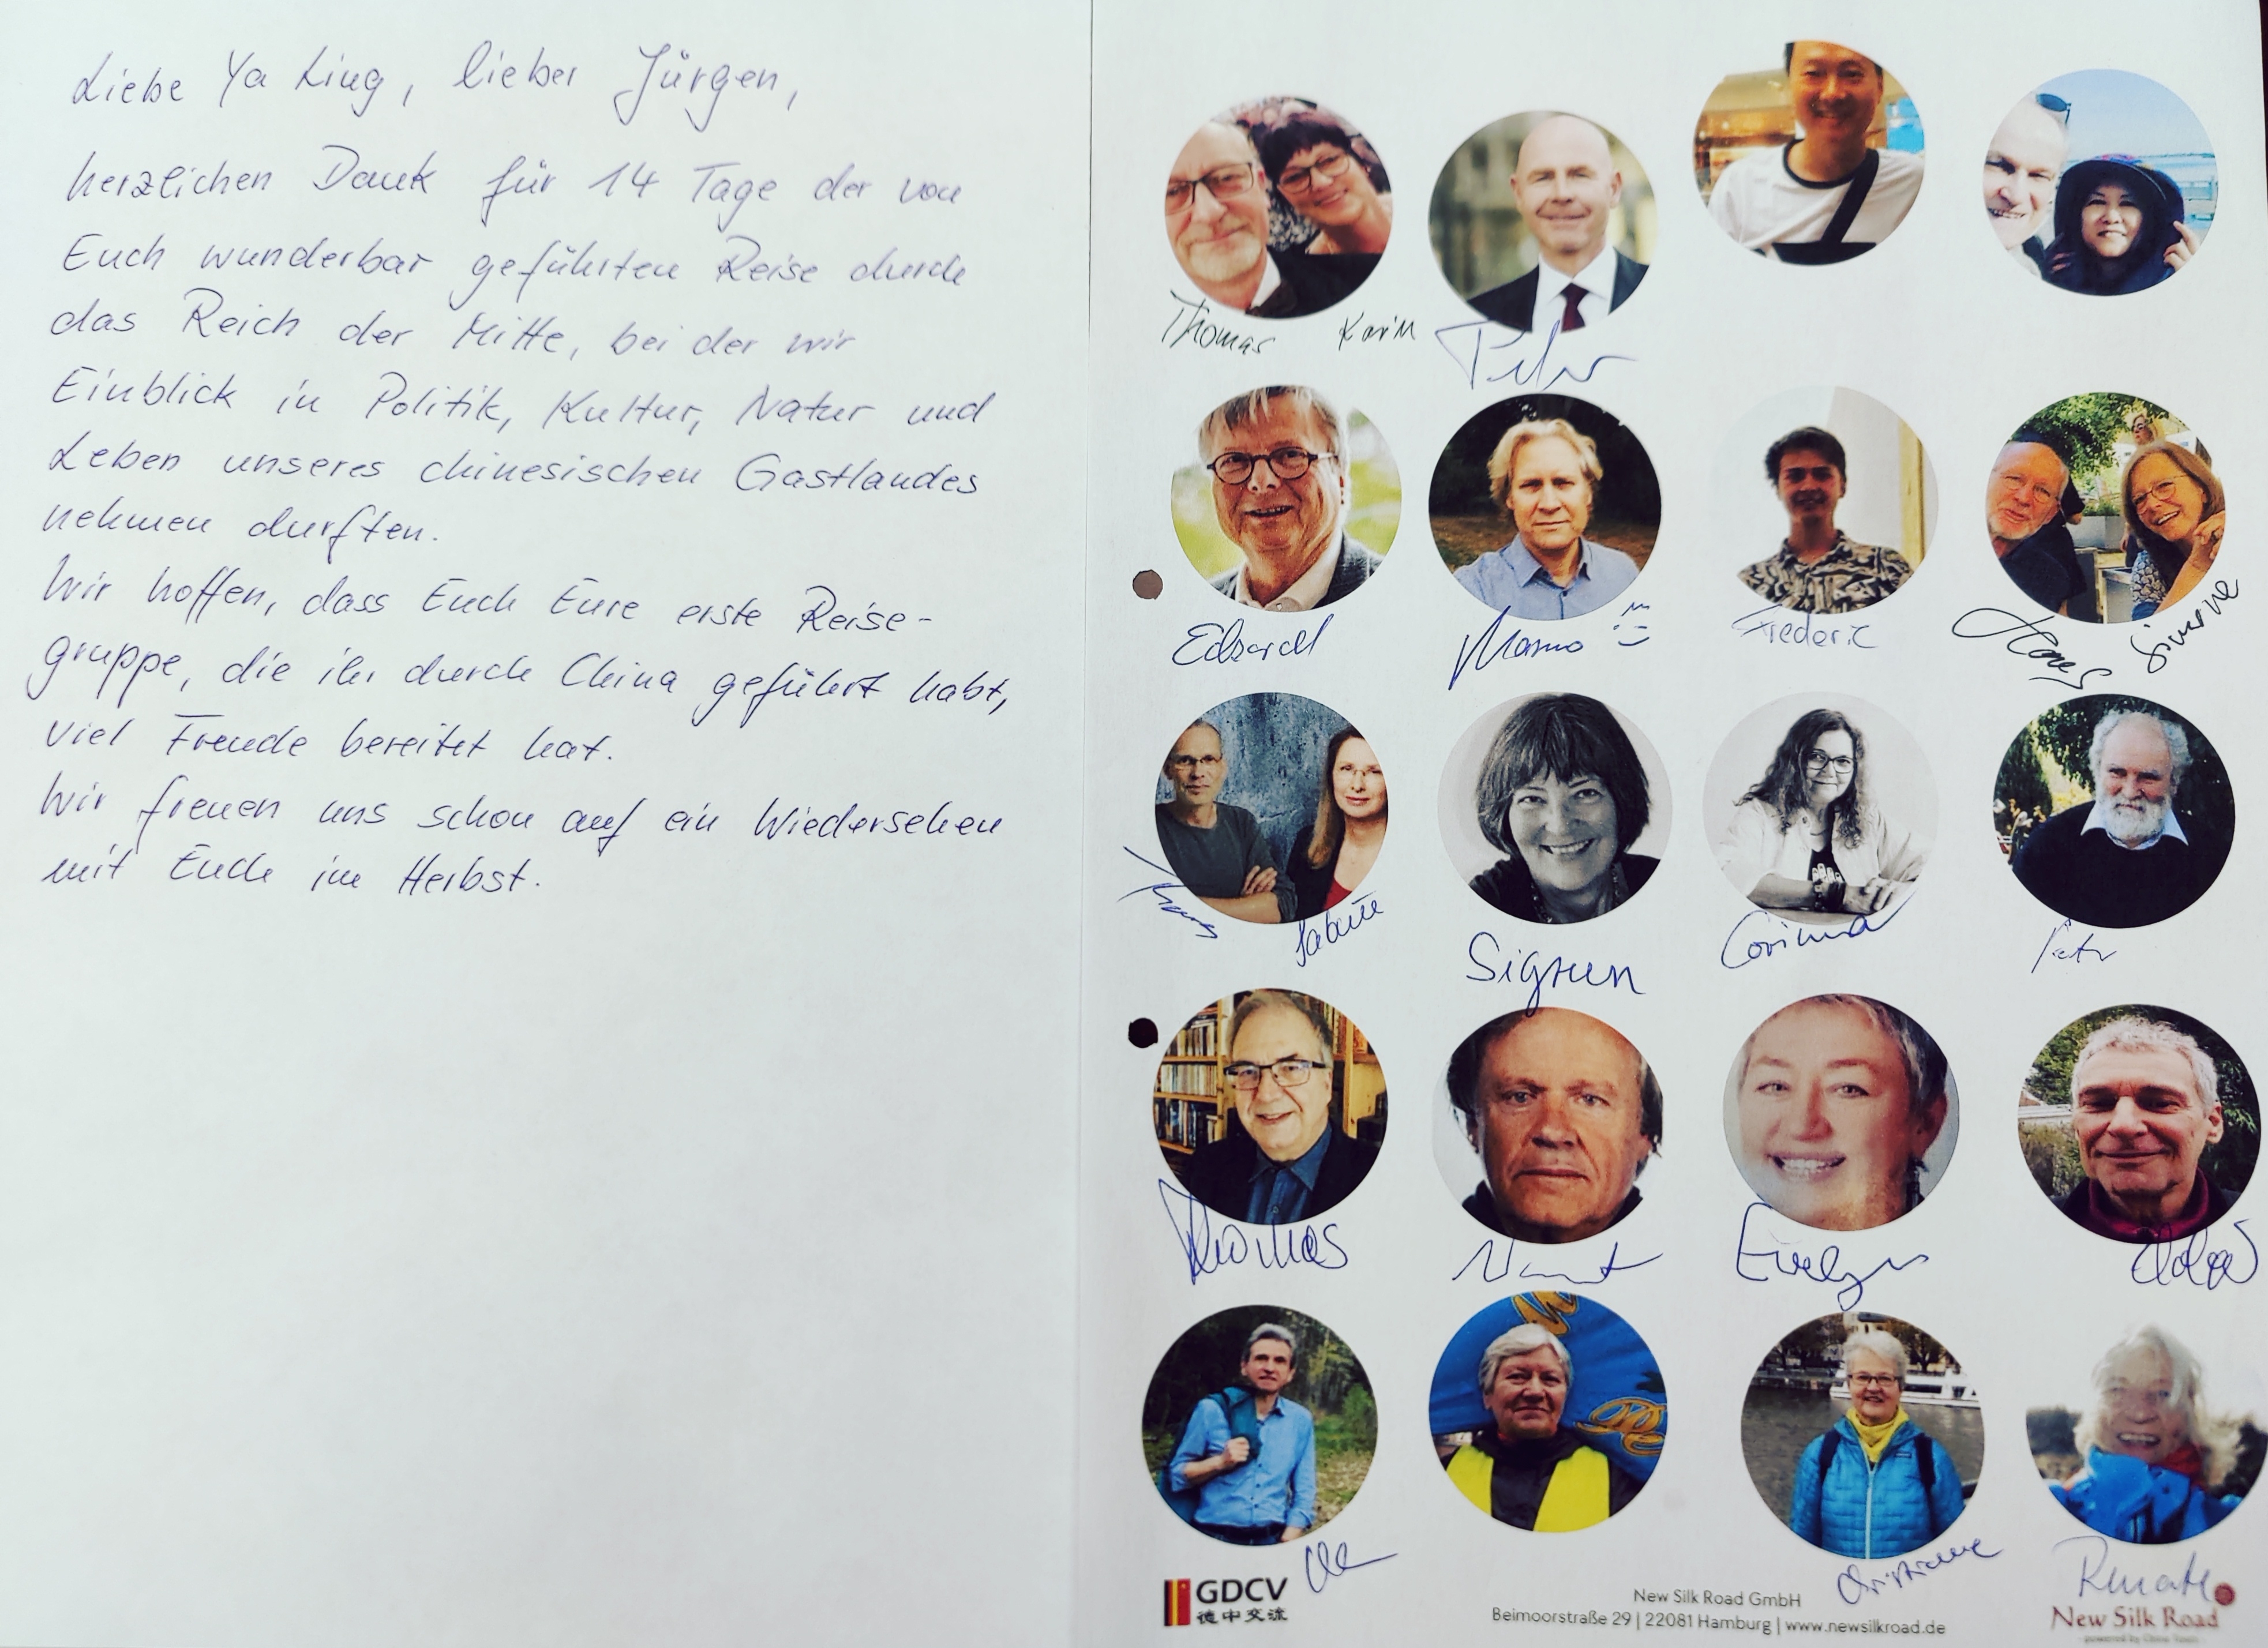 Liebe Ya Ling, lieber Jürgen,
herzlichen Dank für 14 Tage der von
Euch wunderbar geführten Reise durch
das Reich der Mitte, bei der wir
Einblick in Politik, Kultur, Natur und
Leben unseres chinesischen Gastlandes
nehmen durften.
Wir hoffen, dass Euch Eure erste Reise-
gruppe, die ihr durch China geführt habt,
viel Freude bereitet hat.
Wir freuen uns schon auf ein Wiedersehen
mit Euch im Herbst.
Thomas Karin Peter
Edzard Marno Frederic Hans Simone
Thomas Sabine Sigrun Corinna Peter
Thomas Evelyn
Christiane Renate
GDCV
德中交流
New Silk Road GmbH
Beimoorstraße 29 | 22081 Hamburg | www.newsilkroad.de
New Silk Road